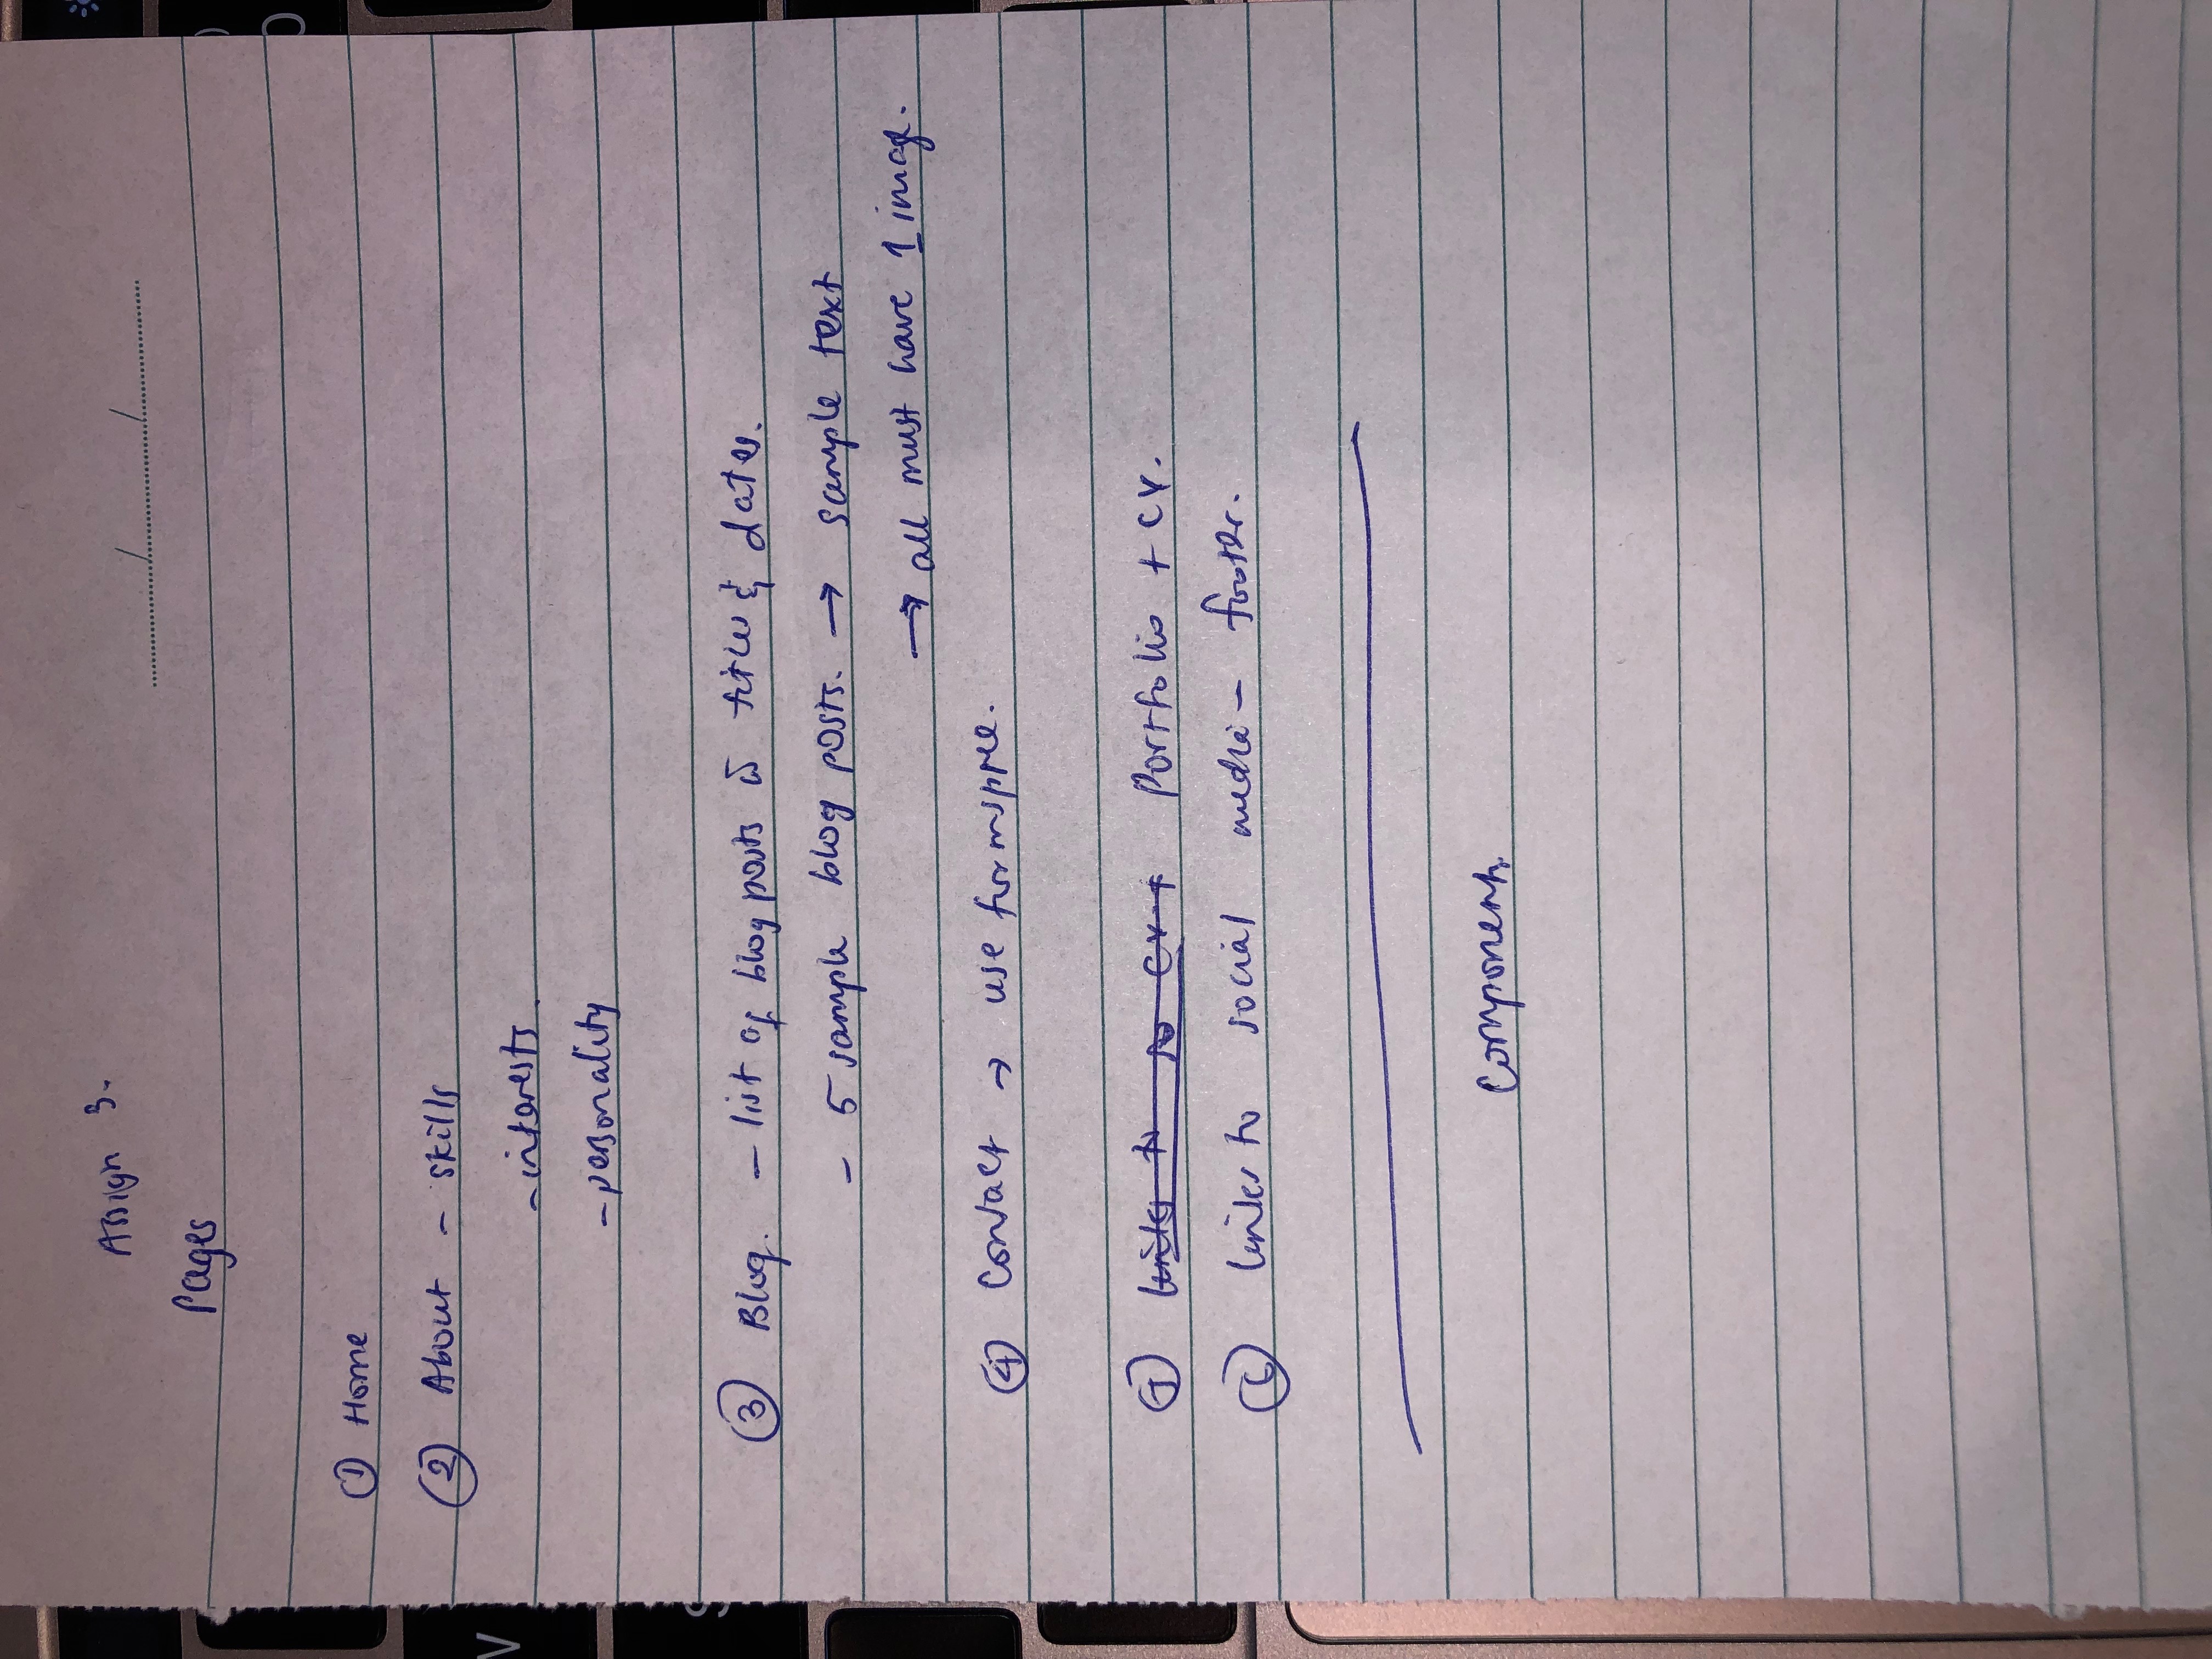 Assign 3.
Pages
① Home
② About - skills
- interests.
- personality
③ Blog. - list of blog posts w̄ titles & dates.
- 5 sample blog posts. → sample text
→ all must have 1 image.
④ Contact → use formspree.
⑤ links to CV + Portfolio + CV.
⑥ links to social media - footer.
Components